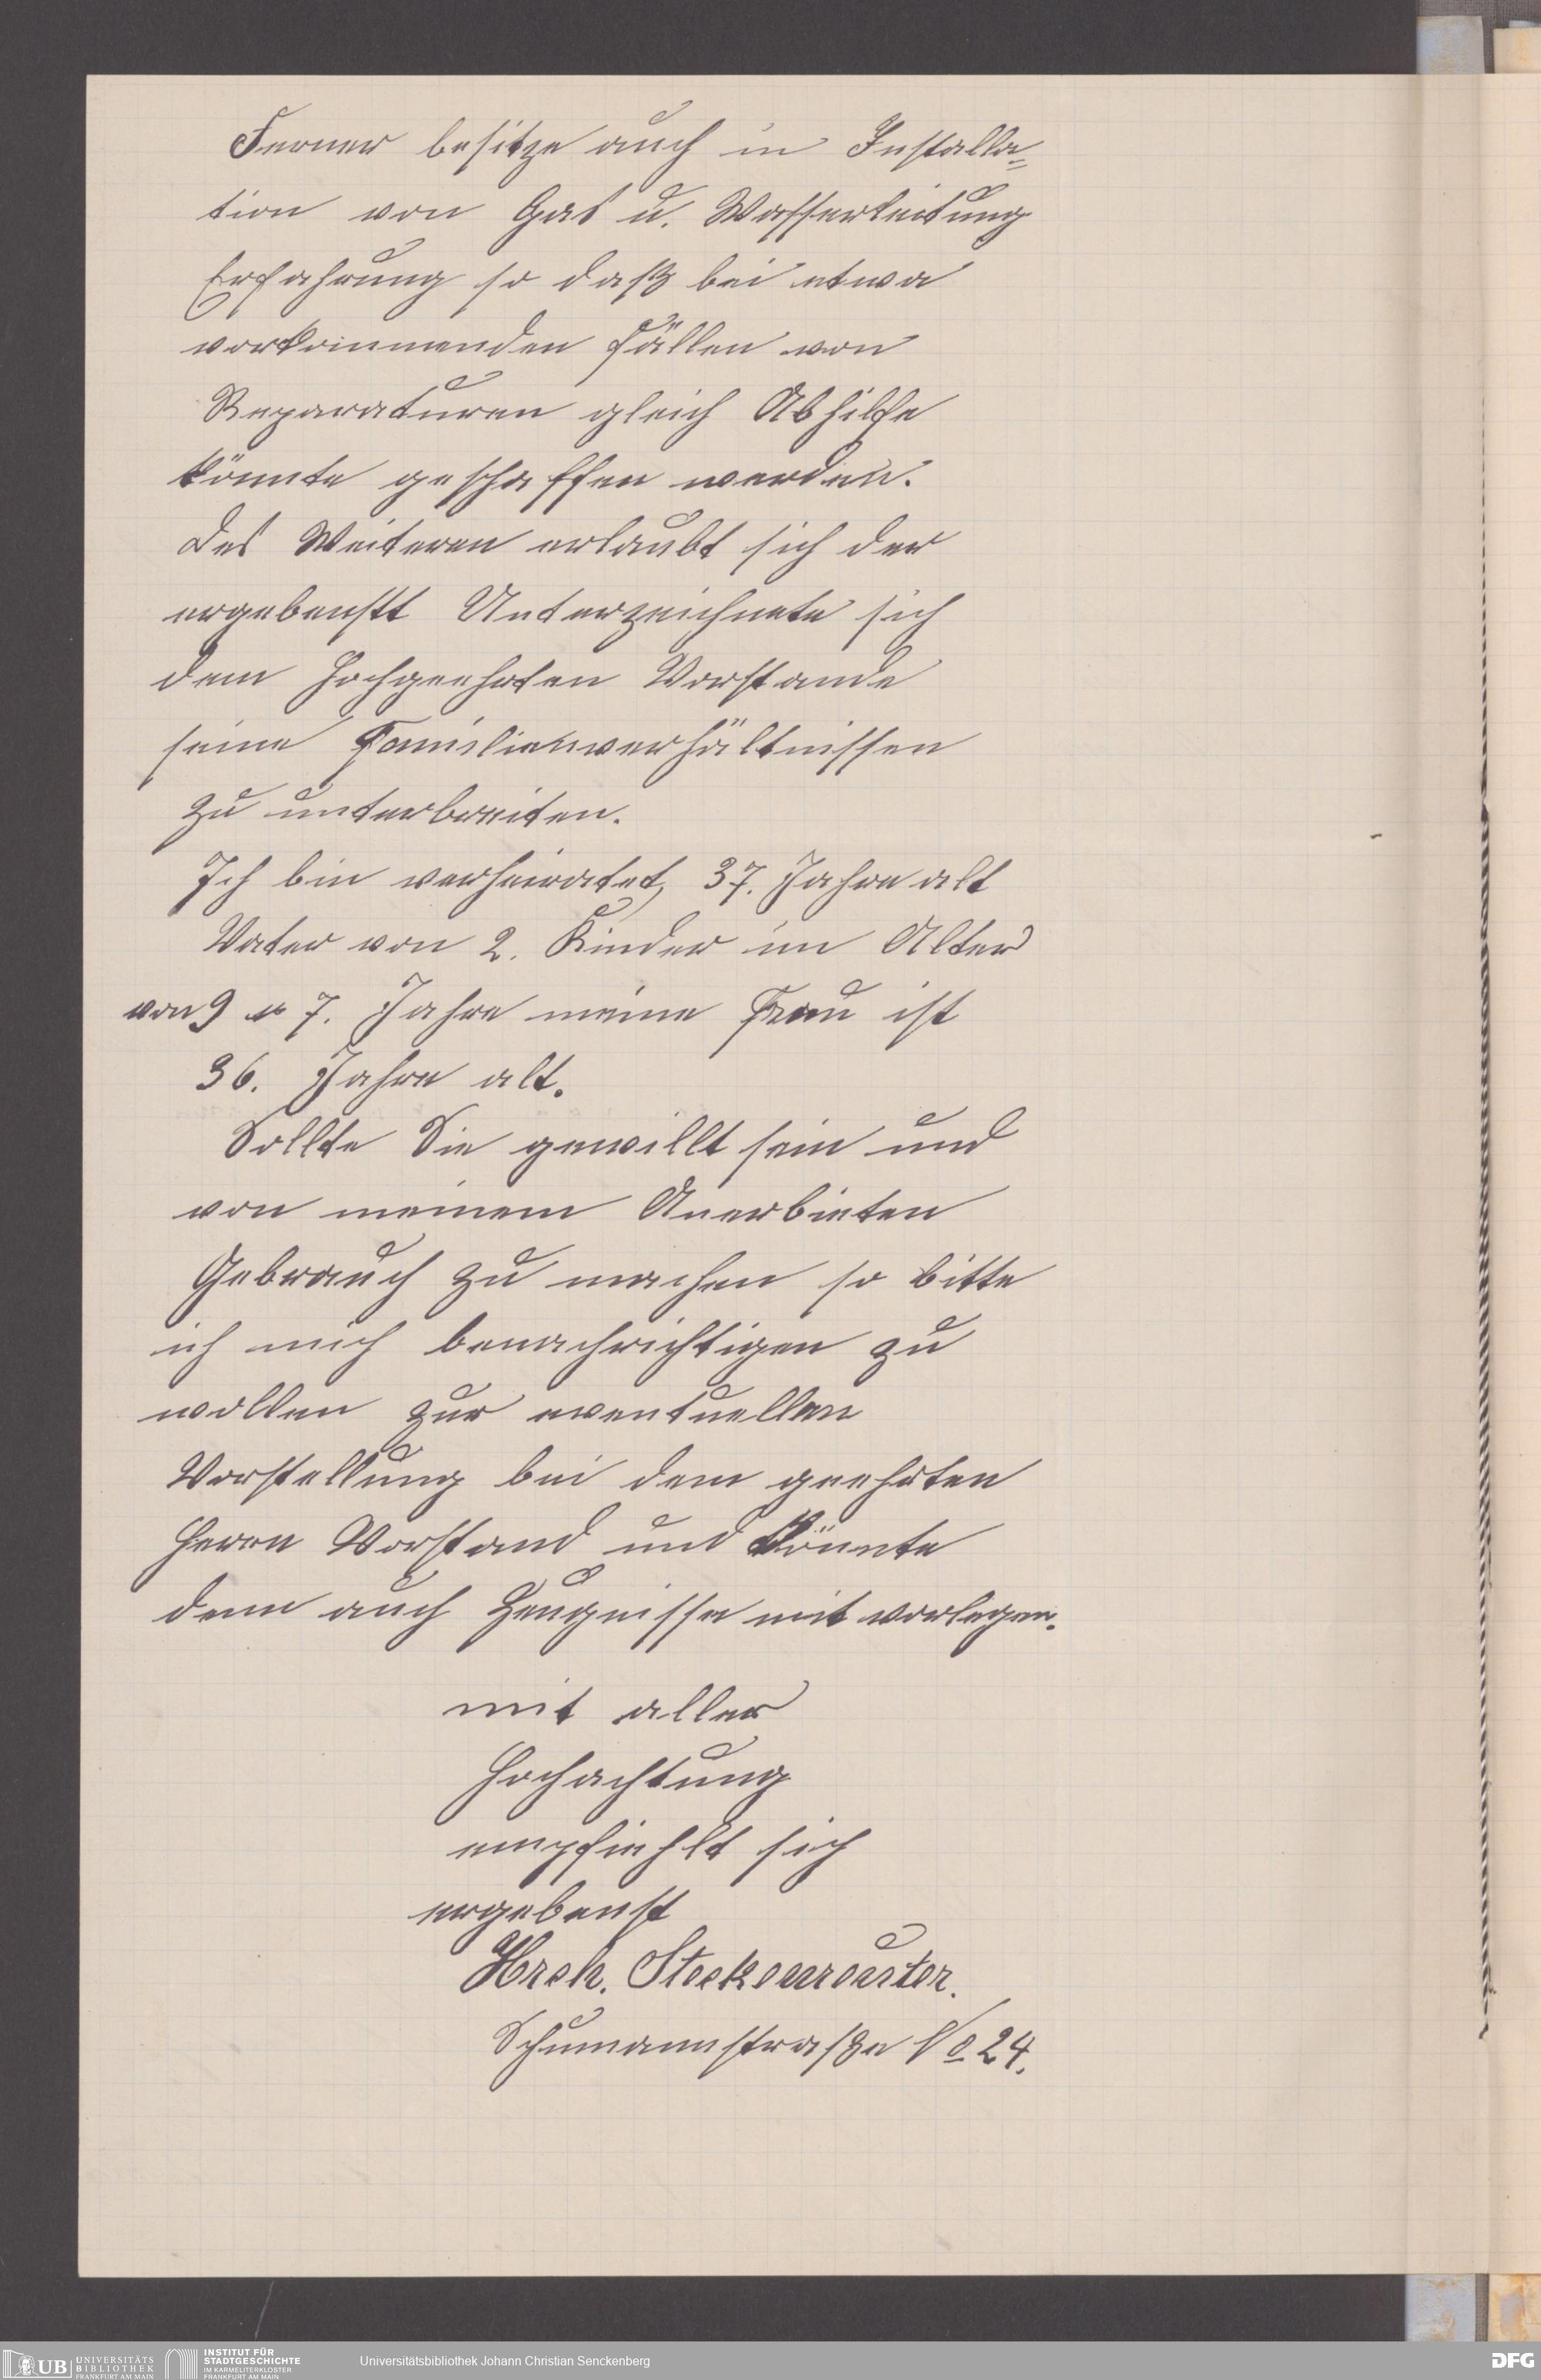 Ferner besitze auch in Installa=
tion von Gas u. Wasserleitung
Erfahrung so daß bei etwa
vorkommenden Fällen von
Reparaturen gleich Abhilfe
könnte geschaffen werden.
Des Weiteren erlaubt sich der
ergebenstt Unterzeichnete sich
dem Hochgeehrten Vorstande
seine Familienverhältnissen
zu unterbreiten.
Ich bin verheiratet, 37. Jahre alt
Vater von 2. Kinder im Alter
von 9 u 7. Jahre meine Frau ist
36. Jahre alt.
Sollte Sie gewillt sein und
von meinem Anerbieten
Gebrauch zu machen so bitte
ich mich benachrichtigen zu
wollen zur eventuellen
Vorstellung bei dem geehrten
Herrn Vorstand und könnte
dann auch Zeugnisse mit vorlegen.
mit aller
Hochachtung
empfiehlt sich
ergebenst
Hrch. Steckenreuter.
Schumannstraße No 24.
UB UNIVERSITÄTS BIBLIOTHEK FRANKFURT AM MAIN
INSTITUT FÜR STADTGESCHICHTE IM KARMELITERKLOSTER FRANKFURT AM MAIN
Universitätsbibliothek Johann Christian Senckenberg
DFG